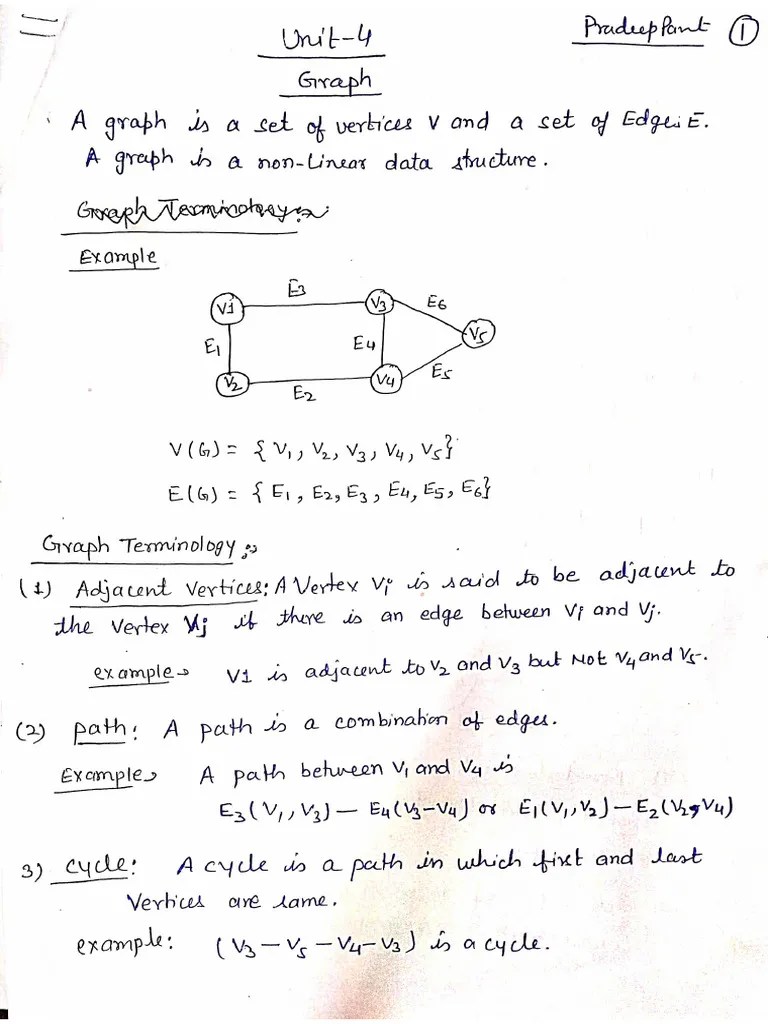 Unit-4
Pradeep Pant 1
Graph
A graph is a set of vertices V and a set of Edges E.
A graph is a non-Linear data structure.
Graph Terminology:
Example
V1 E3 V3 E6
E1 E4 V5
V2 E2 V4 E5
V(G) = { V1, V2, V3, V4, V5}
E(G) = { E1, E2, E3, E4, E5, E6}
Graph Terminology:
(1) Adjacent Vertices: A Vertex Vi is said to be adjacent to
the Vertex Vj if there is an edge between Vi and Vj.
example→ V1 is adjacent to V2 and V3 but Not V4 and V5.
(2) path: A path is a combination of edges.
Example→ A path between V1 and V4 is
E3(V1, V3) — E4(V3-V4) or E1(V1, V2) — E2(V2, V4)
3) cycle: A cycle is a path in which first and last
Vertices are same.
example: (V3 — V5 — V4 — V3) is a cycle.